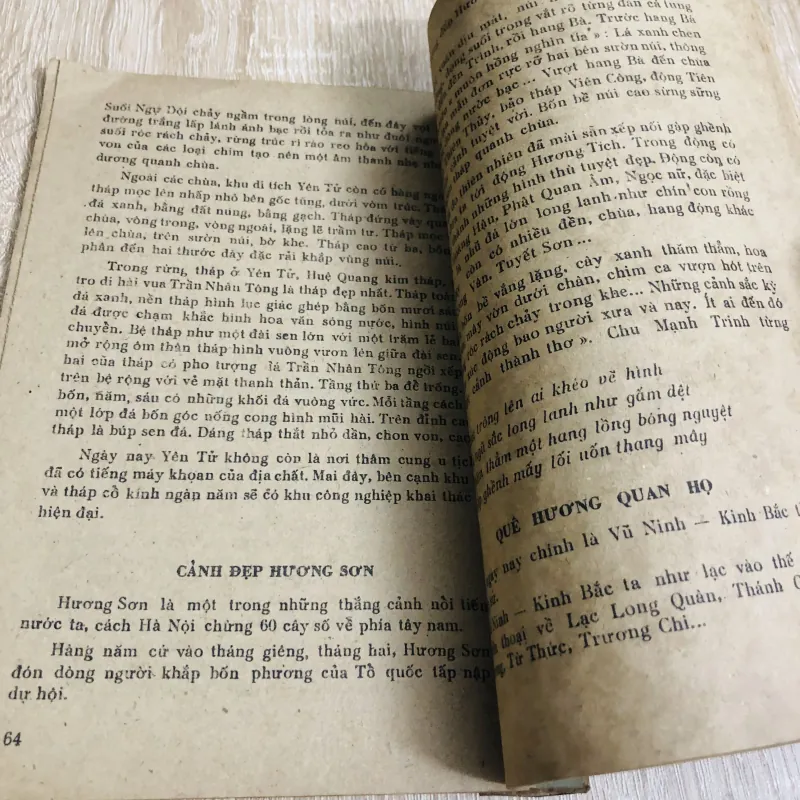 Suối Ngự Dội chảy ngầm trong lòng núi, đến đây vọt
đường trắng lấp lánh ánh bạc rồi tỏa ra như đuôi
suối róc rách chảy, rừng trúc rì rào reo hòa với tiếng
von của các loại chim tạo nên một âm thanh nhẹ
dương quanh chùa.
Ngoài các chùa, khu di tích Yên Tử còn có hàng
tháp mọc lên nhấp nhô bên gốc tùng, dưới vòm trúc. Tháp
đá xanh, bằng đất nung, bằng gạch. Tháp đứng vây quanh
chùa, vòng trong, vòng ngoài, lặng lẽ trầm tư. Tháp mọc
lên chùa, trên sườn núi, bờ khe. Tháp cao từ ba, bốn
phân đến hai thước dày đặc rải khắp vùng núi..
Trong rừng tháp ở Yên Tử, Huệ Quang kim tháp,
tro di hài vua Trần Nhân Tông là tháp đẹp nhất. Tháp toàn
đá xanh, nền tháp hình lục giác ghép bằng bốn mươi
đá được chạm khắc hình hoa văn sóng nước, hình núi
chuyển. Bệ tháp như một đài sen lớn với một trăm lẻ
mở rộng ôm thân tháp hình vuông vươn lên giữa đài sen.
hai của tháp có pho tượng đá Trần Nhân Tông ngồi xếp
trên bệ rộng với vẻ mặt thanh thản. Tầng thứ ba để trống
bốn, năm, sáu có những khối đá vuông vức. Mỗi tầng cách
một lớp đá bốn góc uống cong hình mũi hài. Trên đỉnh
tháp là búp sen đá. Dáng tháp thắt nhỏ dần, chon von,
Ngày nay Yên Tử không còn là nơi thâm cung u tịch
đã có tiếng máy khoan của địa chất. Mai đây, bên cạnh khu
và tháp cổ kính ngàn năm sẽ có khu công nghiệp khai thác
hiện đại.
CẢNH ĐẸP HƯƠNG SƠN
Hương Sơn là một trong những thắng cảnh nổi tiếng
nước ta, cách Hà Nội chừng 60 cây số về phía tây nam.
Hàng năm cứ vào tháng giêng, tháng hai, Hương Sơn
đón dòng người khắp bốn phương của Tổ quốc tấp nập
dự hội.
64
dịu mát, núi
suối trong vắt rõ từng đàn cá tung
Trình, rồi hang Bà. Trước hang Bà
muôn hồng nghìn tía » : Lá xanh chen
mẫu đơn rực rỡ hai bên sườn núi, thông
nước bạc... Vượt hang Bà đến chùa
Thủy, bảo tháp Viên Công, động Tiên
tuyệt vời. Bốn bề núi cao sừng sững
quanh chùa.
thiên nhiên đã mài sẵn xếp nối gập ghềnh
tới động Hương Tích. Trong động có
những hình thù tuyệt đẹp. Động còn có
Hậu, Phật Quan Âm, Ngọc nữ, đặc biệt
nhũ đá lớn long lanh như chín con rồng
còn có nhiều đền, chùa, hang động khác
Vân, Tuyết Sơn...
bề vắng lặng, cây xanh thăm thẳm, hoa
mây vờn dưới chân, chim ca vượn hót trên
róc rách chảy trong khe... Những cảnh sắc kỳ
động bao người xưa và nay. Ít ai đến đó
cảnh thành thơ ». Chu Mạnh Trinh từng
trông lên ai khéo vẽ hình
ngũ sắc long lanh như gấm dệt
thẳm một hang lồng bóng nguyệt
ghềnh mấy lối uốn thang mây
QUÊ HƯƠNG QUAN HỌ
nay chính là Vũ Ninh — Kinh Bắc
Ninh — Kinh Bắc ta như lạc vào thế
thoại về Lạc Long Quân, Thánh
Từ Thức, Trương Chi...